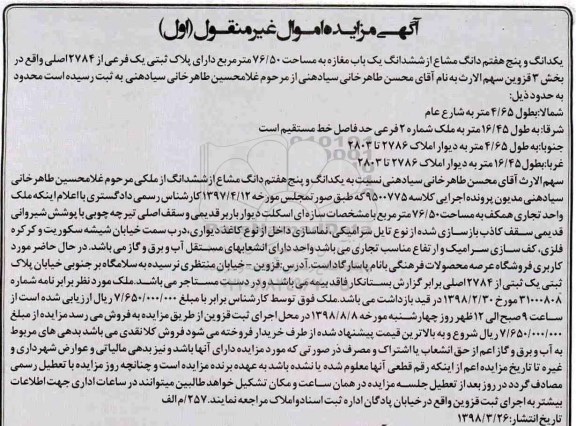 آگهی مزایده اموال غیر منقول (اول)
یکدانگ و پنج هفتم دانگ مشاع از ششدانگ یک باب مغازه به مساحت ۷۶/۵۰ متر مربع دارای پلاک ثبتی یک فرعی از ۲۷۸۴ اصلی واقع در
بخش ۳ قزوین سهم الارث به نام آقای محسن طاهرخانی سیادهنی از مرحوم غلامحسین طاهرخانی سیادهنی به ثبت رسیده است محدود
به حدود ذیل:
شمالا: بطول ۴/۶۵ متر به شارع عام
شرقا: به طول ۱۶/۴۵ متر به ملک شماره ۲ فرعی حد فاصل خط مستقیم است
جنوبا: به طول ۴/۶۵ متر به دیوار املاک ۲۷۸۶ تا ۲۸۰۳
غربا: بطول ۱۶/۴۵ متر به دیوار املاک ۲۷۸۶ تا ۲۸۰۳
سهم الارث آقای محسن طاهرخانی سیادهنی نسبت به یکدانگ و پنج هفتم دانگ مشاع از ششدانگ از ملکی مرحوم غلامحسین طاهرخانی
سیادهنی مدیون پرونده اجرایی کلاسه ۹۵۰۰۷۷۵ که طبق صورتمجلس مورخه ۱۳۹۷/۴/۱۲ کارشناس رسمی دادگستری با اعلام اینکه ملک
واحد تجاری همکف به مساحت ۷۶/۵۰ متر مربع با مشخصات سازه ای اسکلت دیوار باربر قدیمی و سقف اصلی تیرچه چوبی با پوشش شیروانی
قدیمی سقف کاذب بازسازی شده از نوع تایل سرامیکی، نماسازی داخل از نوع کاغذ دیواری، درب سمت خیابان شیشه سکوریت و کرکره
فلزی، کف سازی سرامیک و ارتفاع مناسب تجاری می باشد واحد دارای انشعابهای مستقل آب و برق و گاز می باشد. در حال حاضر مورد
کاربری فروشگاه عرضه محصولات فرهنگی با نام پاسارگاد است. آدرس: قزوین - خیابان منتظری نرسیده به سلامگاه بر جنوبی خیابان پلاک
ثبتی یک ثبتی از ۲۷۸۴ اصلی برابر گزارش بستانکار فاقد بیمه می باشد و در دست مستاجر می باشد. ملک مورد نظر برابر نامه شماره
۳۱۰۰۰۸۰۸ مورخ ۱۳۹۸/۲/۳۰ در قید بازداشت می باشد. ملک فوق توسط کارشناس برابر با مبلغ ۷/۶۵۰/۰۰۰/۰۰۰ ریال ارزیابی شده است از
ساعت ۹ صبح الی ۱۲ ظهر روز چهارشنبه مورخه ۱۳۹۸/۸/۸ در محل اجرای ثبت قزوین از طریق مزایده به فروش می رسد مزایده از مبلغ
۷/۶۵۰/۰۰۰/۰۰۰ ریال شروع و به بالاترین قیمت پیشنهاد شده از طرف خریدار فروخته می شود فروش کلا نقدی می باشد بدهی های مربوط
به آب و برق و گاز اعم از حق انشعاب یا اشتراک و مصرف در صورتی که مورد مزایده دارای آنها باشد و نیز بدهی مالیاتی و عوارض شهرداری و
غیره تا تاریخ مزایده اعم از اینکه رقم قطعی آنها معلوم شده یا نشده باشد به عهده برنده مزایده است و چنانچه روز مزایده با تعطیل رسمی
مصادف گردد در روز بعد از تعطیل جلسه مزایده در همان ساعت و مکان تشکیل خواهد طالبین میتوانند در ساعات اداری جهت اطلاعات
بیشتر به اجرای ثبت قزوین واقع در خیابان پادگان اداره ثبت اسناد و املاک مراجعه نمایند. ۲۵۷/م الف
تاریخ انتشار: ۱۳۹۸/۳/۲۶